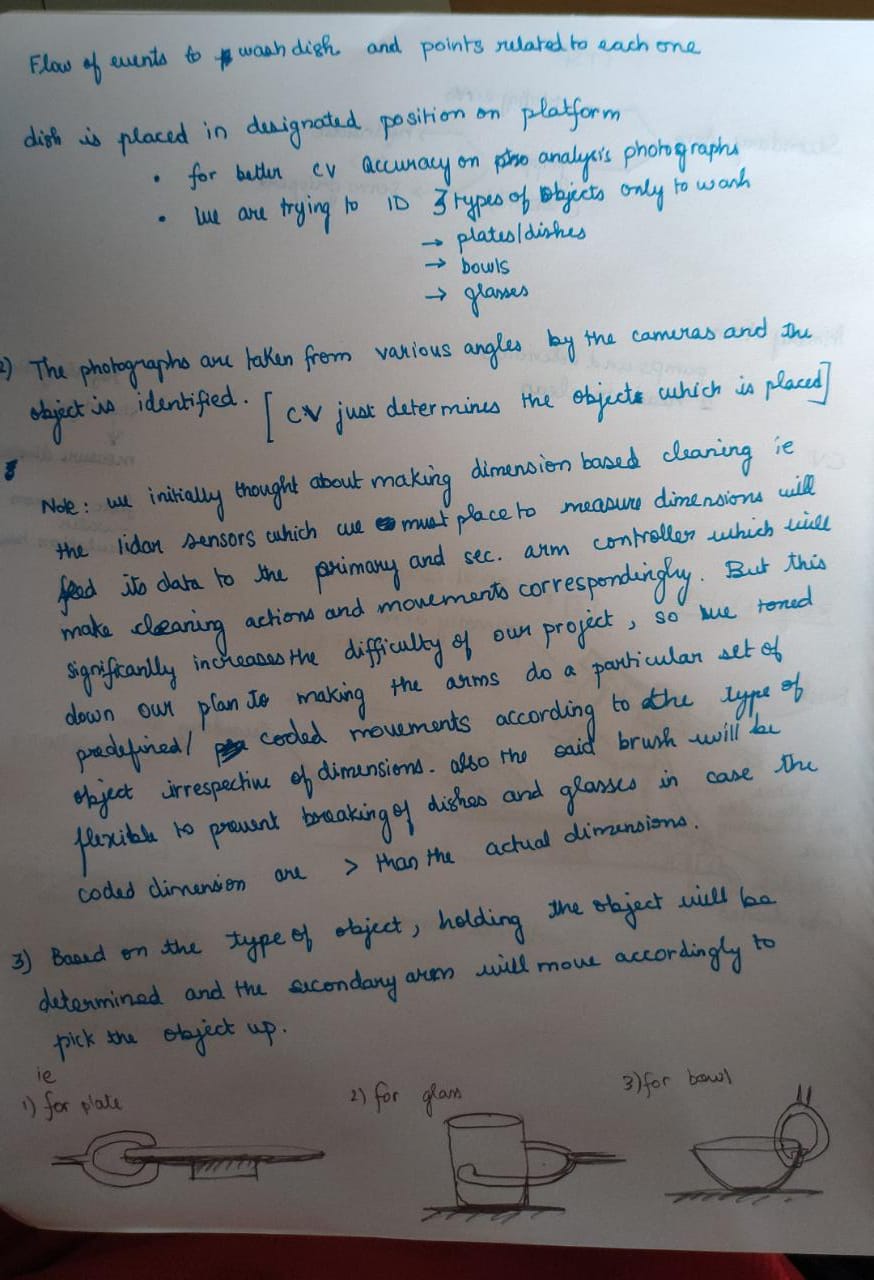 Flow of events to wash dish and points related to each one
dish is placed in designated position on platform
• for better CV accuracy on analysis photographs
• we are trying to ID 3 types of objects only to wash
→ plates/dishes
→ bowls
→ glasses
2) The photographs are taken from various angles by the cameras and the
object is identified. [CV just determines the objects which is placed]
Note: we initially thought about making dimension based cleaning ie
the lidar sensors which we must place to measure dimensions will
feed its data to the primary and sec. arm controller which will
make cleaning actions and movements correspondingly. But this
significantly increases the difficulty of our project, so we toned
down our plan to making the arms do a particular set of
predefined/ coded movements according to the type of
object irrespective of dimensions. also the said brush will be
flexible to prevent breaking of dishes and glasses in case the
coded dimension are > than the actual dimensions.
3) Based on the type of object, holding the object will be
determined and the secondary arm will move accordingly to
pick the object up.
ie
1) for plate 2) for glass 3) for bowl